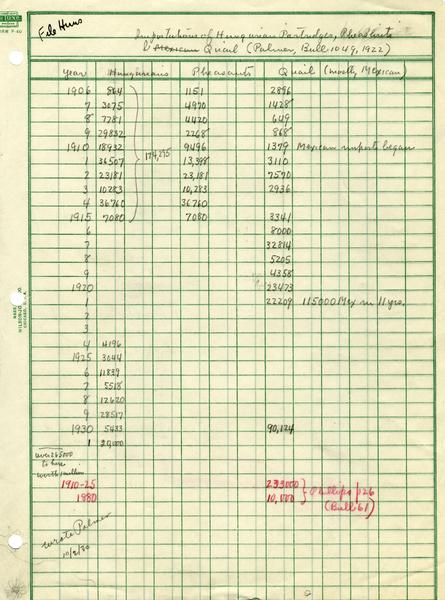 File Huns
Importations of Hungarian Partridges, Pheasants
& Mexican Quail (Palmer, Bull 1049, 1922)
Year Hungarians Pheasants Quail (mostly Mexican)
1906 864 1151 2896
7 3075 4970 1428
8 7781 4420 649
9 29832 2268 868
1910 18932 174,295 9496 1379 Mexican imports began
1 36507 13,398 3110
2 23,181 23,181 7570
3 10283 10,283 2936
4 36760 36760
1915 7080 7080 3341
6 8000
7 32814
8 5205
9 4358
1920 23473
1 22209 115000 Mex in 11 yrs.
2
3
4 4196
1925 3044
6 11839
7 5518
8 12620
9 28517
1930 5433 90,124
1
over 265000
to here
worth 1 million
1910-25 233000 Phillips 126
1930 10,000 (Bull 61)
wrote Palmer
10/2/30